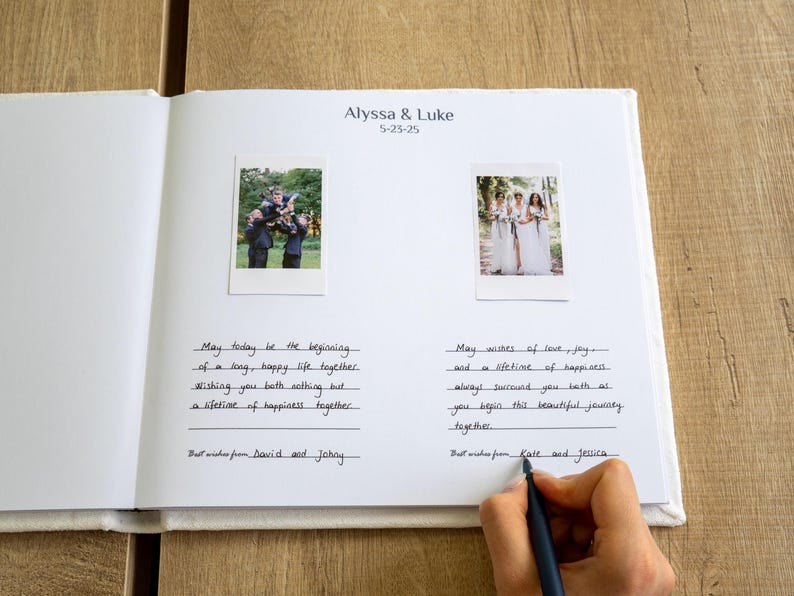 Alyssa & Luke
5-23-25
May today be the beginning
of a long, happy life together.
Wishing you both nothing but
a lifetime of happiness together.
Best wishes from David and Johny
May wishes of love, joy,
and a lifetime of happiness
always surround you both as
you begin this beautiful journey
together.
Best wishes from Kate and Jessica